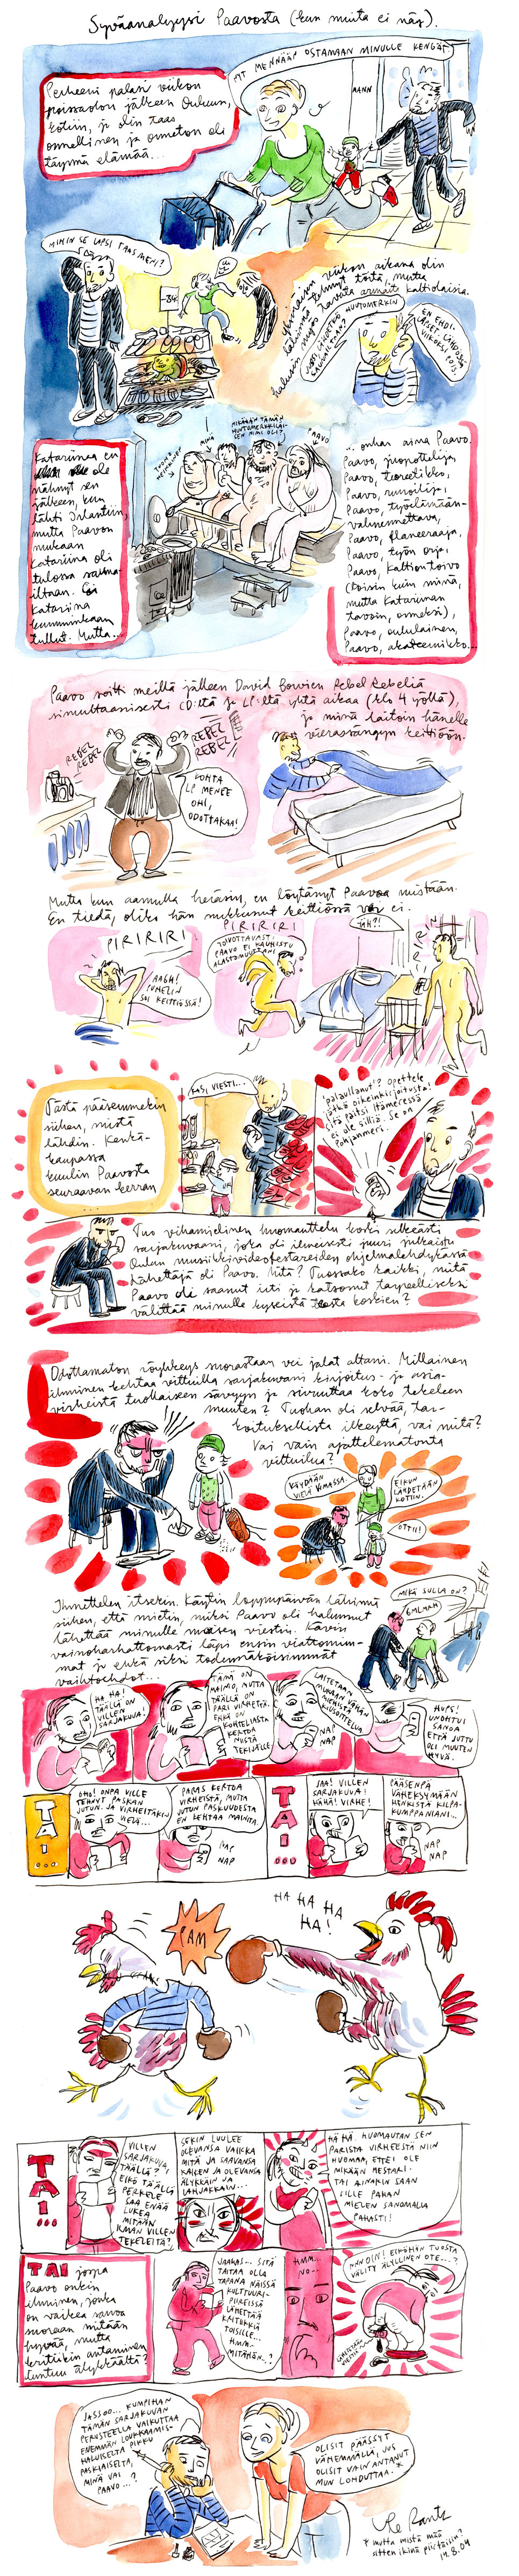 Syväanalyysi Paavosta (kun muita ei näy).
NYT MENNÄÄN OSTAMAAN MINULLE KENGÄT.
Perheeni palasi viikon
poissaolon jälkeen Ouluun,
kotiin, ja olin taas
onnellinen ja onneton oli
täynnä elämää...
MIHIN SE LAPSI TAAS MENI?
viikon aikana olin
lähinnä tehnyt töitä, mutta
halusin myös
EN EHDI-
Katariinaa en
ole
nähnyt sen
jälkeen, kun
lähti Irlantiin,
mutta Paavon
mukaan
Katariina oli
tulossa sauna-
iltaan. Ei
Katariina
kumminkaan
tullut. Mutta...
MINÄ
MIKÄHÄN TÄMÄN
HUUTOMERKKILÄI-
SEN NIMI OLI?
PAAVO
... onhan aina Paavo.
Paavo, juopottelija,
Paavo, teoreetikko,
Paavo, runoilija,
Paavo, työelämään-
valmennettava,
Paavo, flaneeraaja,
Paavo, työn orja,
Paavo, Kaltion toivo
(toisin kuin minä,
mutta Katariinan
tavoin, onneksi),
Paavo, oululainen,
Paavo, akateemikko...
Paavo soitti meillä jälleen David Bowien Rebel Rebeliä
simultaanisesti CD:ltä ja LP:ltä yhtä aikaa (klo 4 yöllä),
ja minä laitoin hänelle
vierassängyn keittiöön.
REBEL
REBEL
REBEL
REBEL
KOHTA
LP MENEE
OHI,
ODOTTAKAA!
Mutta kun aamulla heräsin, en löytänyt Paavoa mistään.
En tiedä, oliko hän nukkunut keittiössä vai ei.
PIRIRIRI
AAGH!
PUHELIN
SOI KEITTIÖSSÄ!
PIRIRIRI
TOIVOTTAVASTI
PAAVO EI KAUHISTU
ALASTOMUUTTANI
ÄH?!
Tästä pääsemmekin
siihen, mistä
lähdin. Kenkä-
kaupassa
kuulin Paavosta
seuraavan kerran
KAS, VIESTI...
"palaullanut"? Opettele
jätkä oikeinkirjoitusta!
Itämeressä
ei ole silliä. Se on
Pohjanmeri.
Tuo vihamielinen huomauttelu koski selkeästi
sarjakuvaani, joka oli ilmeisesti juuri julkaistu
Oulun musiikkivideofestareiden ohjelmalehdykässä.
Lähettäjä oli Paavo. Mitä? Tuossako kaikki, mitä
Paavo oli saanut irti ja katsonut tarpeelliseksi
välittää minulle kyseistä teosta koskien?
Odottamaton röyhkeys suorastaan vei jalat altani. Millainen
ihminen kehtaa vittuilla sarjakuvani kirjoitus- ja asia-
virheistä tuollaiseen sävyyn ja sivuuttaa koko tekeleen
muuten? Tuohan oli selvää, tar-
koituksellista ilkeyttä, vai mitä?
Vai vain ajattelematonta
vittuilua?
KÄYDÄÄN
VIELÄ VIMASSA.
EIKUN
LÄHDETÄÄN
KOTIIN.
OTTII!
Ihmettelen itsekin. Käytin loppupäivän lähinnä
siihen, että mietin, miksi Paavo oli halunnut
lähettää minulle moisen viestin. Kävin
vainoharhattomasti läpi ensin viattomim-
mat ja ehkä siksi todennäköisimmät
vaihtoehdot...
MIKÄ SULLA ON?
HA HA!
TÄÄLLÄ ON
VILLEN
SARJAKUVA!
TÄMÄ ON
HAUSKA, MUTTA
TÄÄLLÄ ON
PARI VIRHETTÄ.
EHKÄ ON
KOHTELIASTA
KERTOA
NIISTÄ
TEKIJÄLLE.
LAITETAAN
MUKAAN VÄHÄN
MIEHISTÄ
KIUSOITTELUA.
NA!
NAP
HUPS!
UNOHTUI
SANOA
ETTÄ JUTTU
OLI MUUTEN
HYVÄ.
TAI...
OHO! ONPA VILLE
TEHNYT PASKAN
JUTUN. JA VIRHEITÄKIN
VIELÄ...
PARAS KERTOA
VIRHEISTÄ, MUTTA
JUTUN PASKUUDESTA
EN KEHTAA MAINITA.
NAP
NAP
TAI...
JAA! VILLEN
SARJAKUVA!
HÄHÄ! VIRHE!
PÄÄSENPÄ
VÄHEKSYMÄÄN
HENKISTÄ KILPA-
KUMPPANIANI...
NAP
NAP
PAM
HA HA HA
HA!
TAI...
VILLEN
SARJAKUVA
TÄÄLLÄ?
EIKÖ TÄÄLLÄ
PERKELE
SAA ENÄÄ
LUKEA
MITÄÄN
ILMAN VILLEN
TEKELEITÄ?
SEKIN LUULEE
OLEVANSA VAIKKA
MITÄ JA SAAVANSA
KAIKEN JA OLEVANSA
ÄLYKÄS JA
LAHJAKKAIN...
HÄ HÄ. HUOMAUTAN SEN
PARISTA VIRHEESTÄ NIIN
HUOMAA, ETTEI OLE
MIKÄÄN MESTARI.
TAI AINAKIN SAAN
SILLE PAHAN
MIELEN SANOMALLA
PAHASTI!
TAI jospa
Paavo onkin
ihminen, jonka
on vaikea sanoa
suoraan mitään
hyvää, mutta
kritiikin antaminen
tuntuu älykkäältä?
JAAHAS... SITÄ
TAITAA OLLA
TAPANA NÄISSÄ
KULTTUURI-
PIIREISSÄ
LÄHETTÄÄ
KRITIIKKIÄ
TOISILLE...
HMM...
MITÄHÄN..?
HMM...
NO...
NÄIN OLI! EIKÖHÄN TUOSTA
VÄLITY ÄLYLLINEN OTE...?
JASSOO... KUMPIHAN
TÄMÄN SARJAKUVAN
PERUSTEELLA VAIKUTTAA
ENEMMÄN LOUKKAAMIS-
HALUISELTA PIKKU
PASKIAISELTA,
MINÄ VAI
PAAVO...?
OLISIT PÄÄSSYT
VÄHEMMÄLLÄ, JOS
OLISIT VAIN ANTANUT
MUN LOHDUTTAA.*
*mutta mistä mää
sitten ikinä piirtäisin?